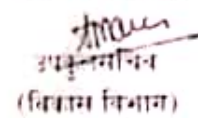 उपकुलसचिव
(विकास विभाग)